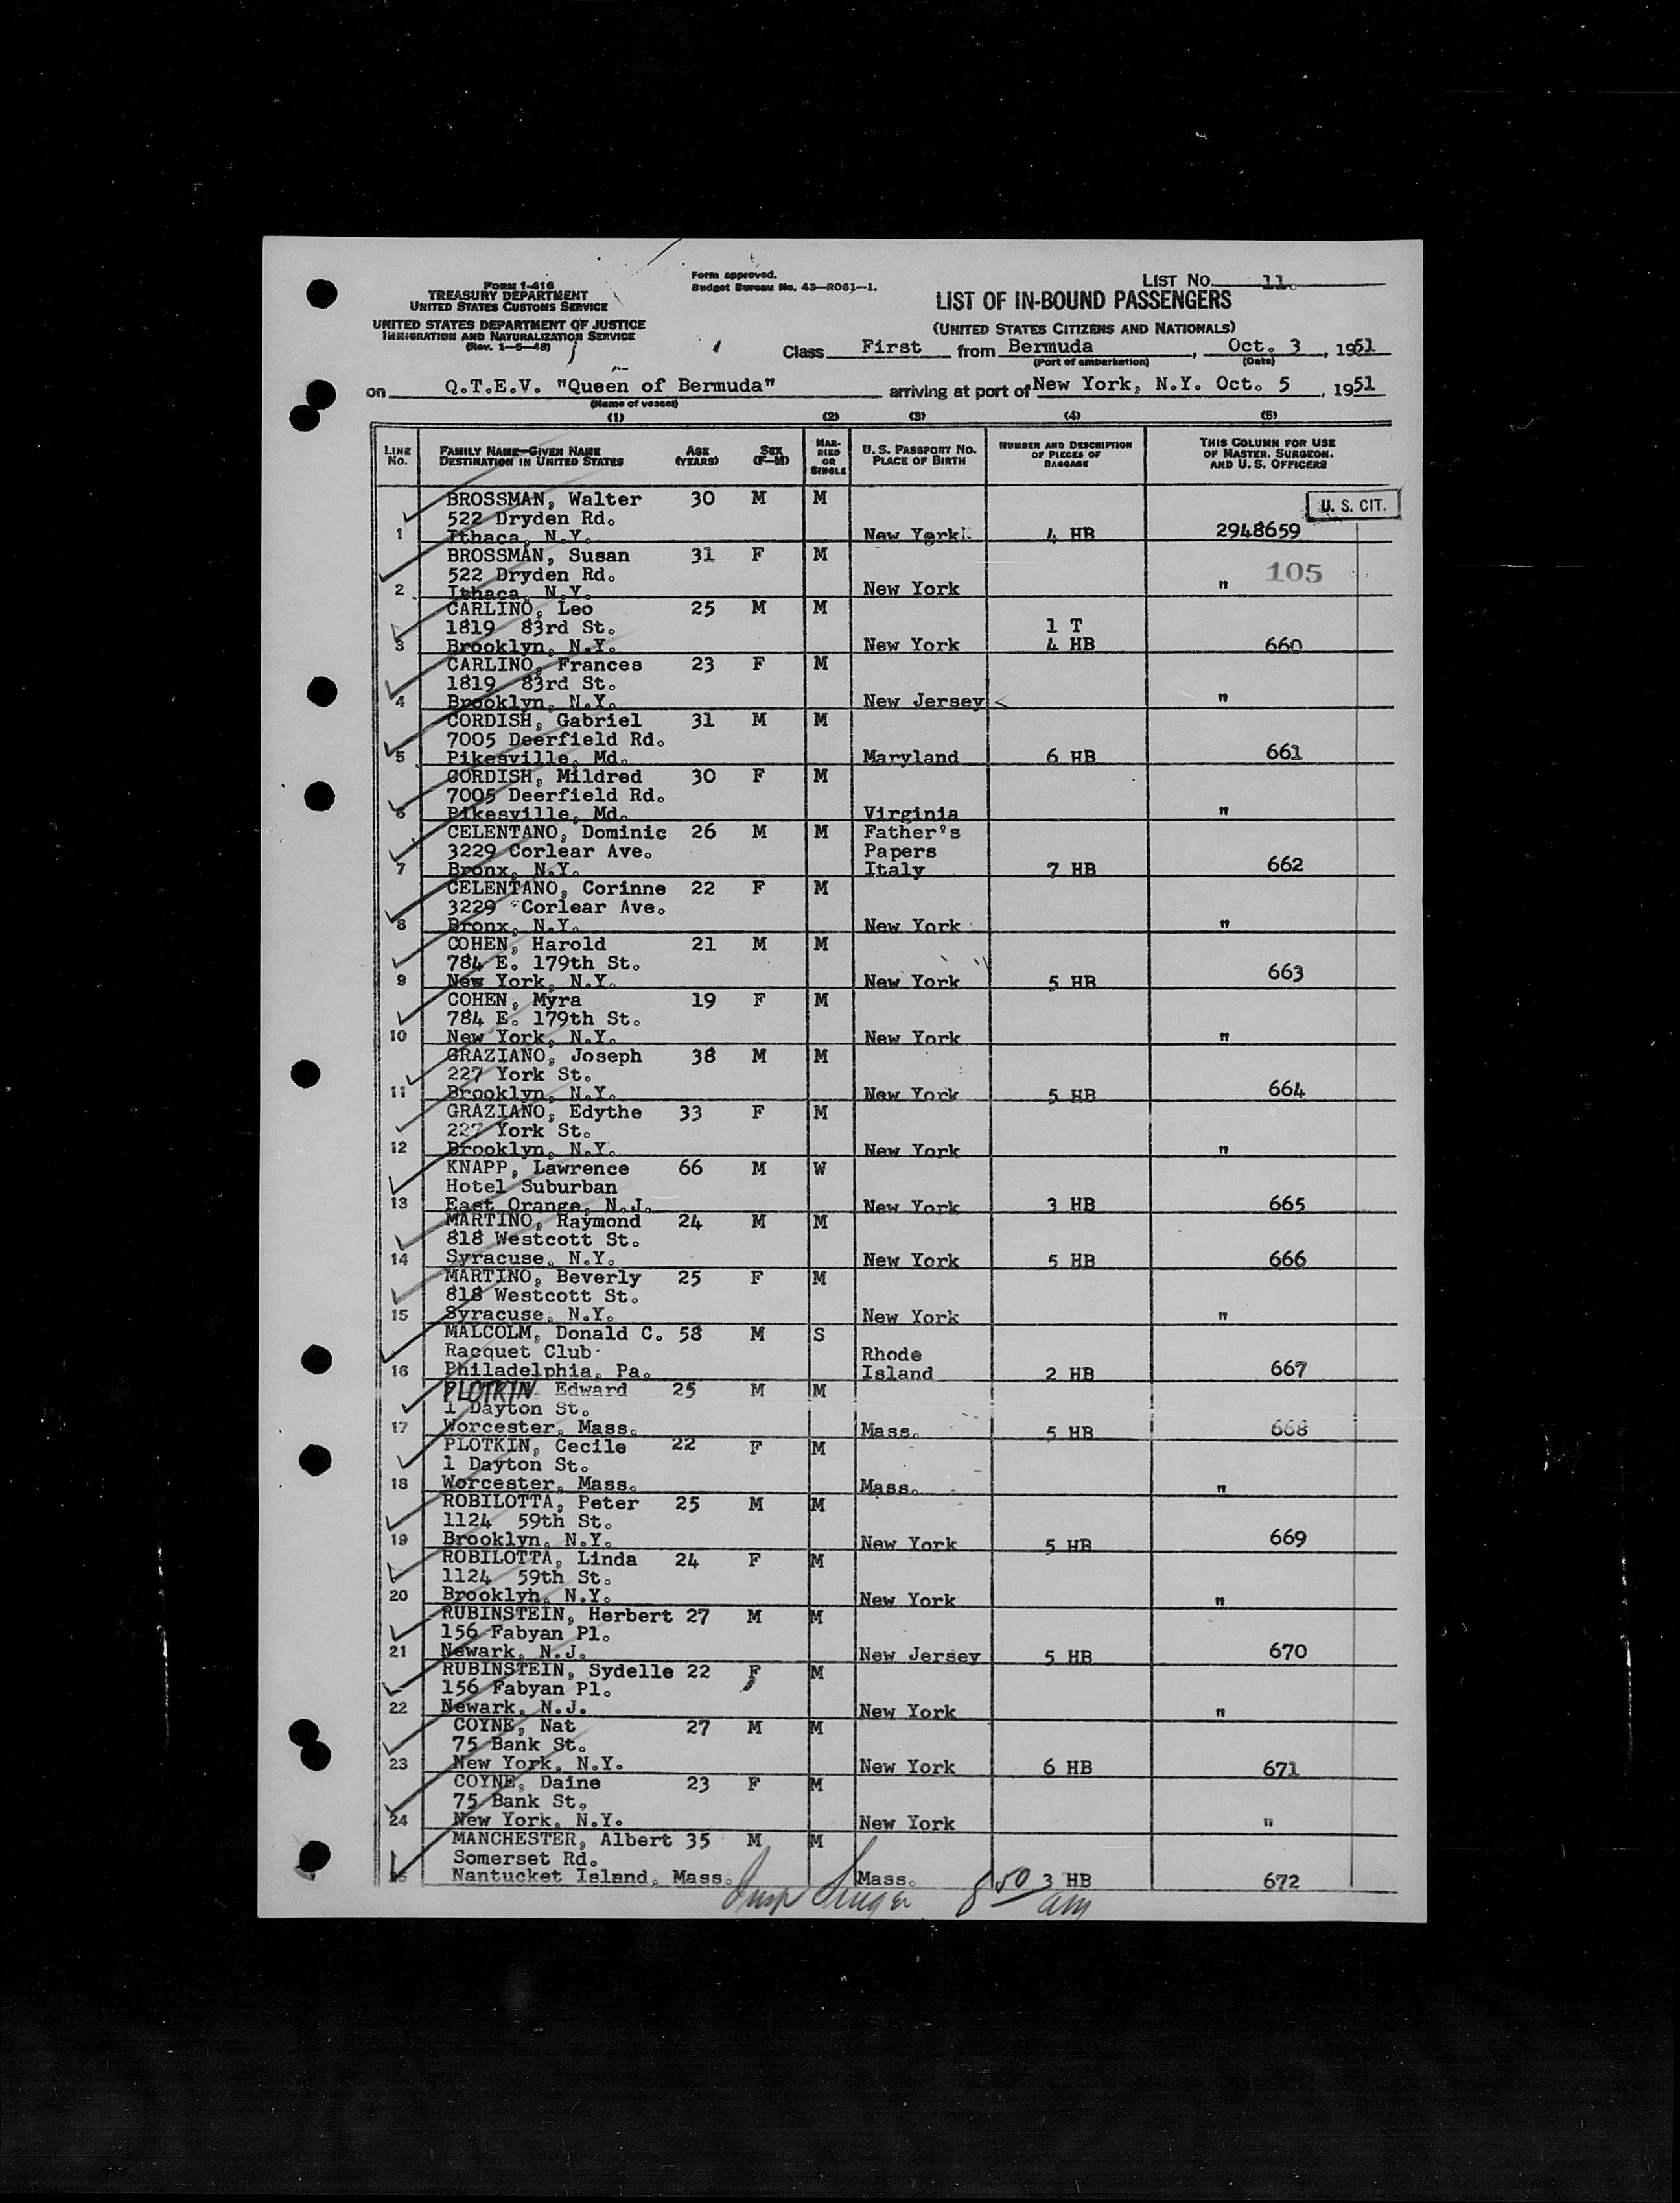 FORM I-416
TREASURY DEPARTMENT
UNITED STATES CUSTOMS SERVICE
UNITED STATES DEPARTMENT OF JUSTICE
IMMIGRATION AND NATURALIZATION SERVICE
(Rev. 1-5-48)
Form approved.
Budget Bureau No. 43-R061-1.
LIST No. 11.
LIST OF IN-BOUND PASSENGERS
(UNITED STATES CITIZENS AND NATIONALS)
Class First from Bermuda, Oct. 3, 1951
(Port of embarkation) (Date)
on Q.T.E.V. "Queen of Bermuda" arriving at port of New York, N.Y. Oct. 5, 1951
(Name of vessel)
(1) (2) (3) (4) (5)
LINE No. FAMILY NAME-GIVEN NAME DESTINATION IN UNITED STATES AGE (YEARS) SEX (F-M) MARRIED OR SINGLE U. S. PASSPORT NO. PLACE OF BIRTH NUMBER AND DESCRIPTION OF PIECES OF BAGGAGE THIS COLUMN FOR USE OF MASTER, SURGEON, AND U. S. OFFICERS
BROSSMAN, Walter 30 M M U. S. CIT.
522 Dryden Rd.
1 Ithaca, N.Y. New York 4 HB 2948659
BROSSMAN, Susan 31 F M
522 Dryden Rd. 105
2 Ithaca, N.Y. New York "
CARLINO, Leo 25 M M
1819 83rd St. 1 T
3 Brooklyn, N.Y. New York 4 HB 660
CARLINO, Frances 23 F M
1819 83rd St.
4 Brooklyn, N.Y. New Jersey "
CORDISH, Gabriel 31 M M
7005 Deerfield Rd.
5 Pikesville, Md. Maryland 6 HB 661
CORDISH, Mildred 30 F M
7005 Deerfield Rd.
6 Pikesville, Md. Virginia "
CELENTANO, Dominic 26 M M Father's
3229 Corlear Ave. Papers
7 Bronx, N.Y. Italy 7 HB 662
CELENTANO, Corinne 22 F M
3229 Corlear Ave.
8 Bronx, N.Y. New York "
COHEN, Harold 21 M M
784 E. 179th St.
9 New York, N.Y. New York 5 HB 663
COHEN, Myra 19 F M
784 E. 179th St.
10 New York, N.Y. New York "
GRAZIANO, Joseph 38 M M
227 York St.
11 Brooklyn, N.Y. New York 5 HB 664
GRAZIANO, Edythe 33 F M
227 York St.
12 Brooklyn, N.Y. New York "
KNAPP, Lawrence 66 M W
Hotel Suburban
13 East Orange, N.J. New York 3 HB 665
MARTINO, Raymond 24 M M
818 Westcott St.
14 Syracuse, N.Y. New York 5 HB 666
MARTINO, Beverly 25 F M
818 Westcott St.
15 Syracuse, N.Y. New York "
MALCOLM, Donald C. 58 M S
Racquet Club Rhode
16 Philadelphia, Pa. Island 2 HB 667
PLOTKIN Edward 25 M M
1 Dayton St.
17 Worcester, Mass. Mass. 5 HB 668
PLOTKIN, Cecile 22 F M
1 Dayton St.
18 Worcester, Mass. Mass. "
ROBILOTTA, Peter 25 M M
1124 59th St.
19 Brooklyn, N.Y. New York 5 HB 669
ROBILOTTA, Linda 24 F M
1124 59th St.
20 Brooklyn, N.Y. New York "
RUBINSTEIN, Herbert 27 M M
156 Fabyan Pl.
21 Newark, N.J. New Jersey 5 HB 670
RUBINSTEIN, Sydelle 22 F M
156 Fabyan Pl.
22 Newark, N.J. New York "
COYNE, Nat 27 M M
75 Bank St.
23 New York, N.Y. New York 6 HB 671
COYNE, Daine 23 F M
75 Bank St.
24 New York, N.Y. New York "
MANCHESTER, Albert 35 M M
Somerset Rd.
25 Nantucket Island, Mass. Mass. 3 HB 672
Insp Singer 8 50 am